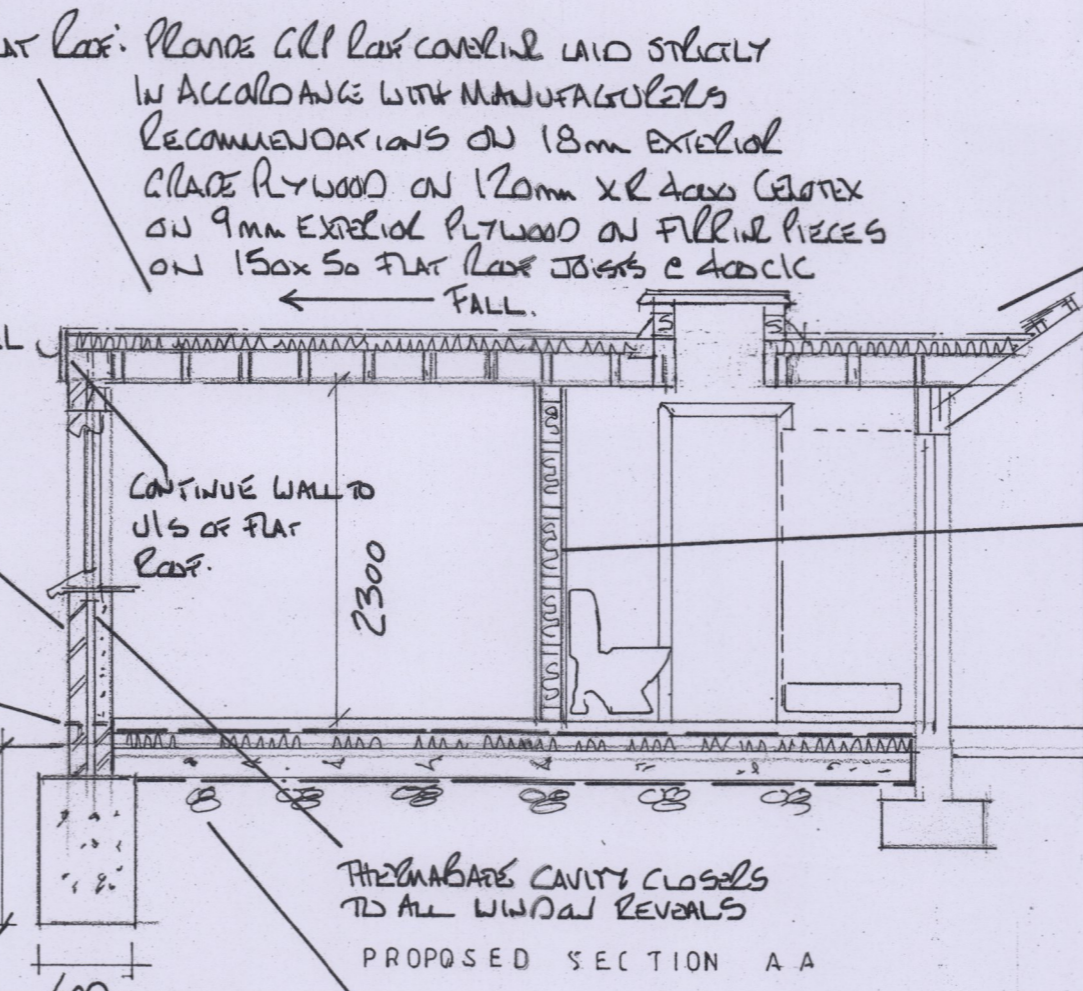 AT ROOF: PROVIDE GRP ROOF COVERING LAID STRICTLY
IN ACCORDANCE WITH MANUFACTURERS
RECOMMENDATIONS ON 18mm EXTERIOR
GRADE PLYWOOD ON 120mm XR 4000 CELOTEX
ON 9mm EXTERIOR PLYWOOD ON FIRRING PIECES
ON 150x50 FLAT ROOF JOISTS @ 400 C/C
FALL.
L
CONTINUE WALL TO
U/S OF FLAT
ROOF.
2300
THERMABATE CAVITY CLOSERS
TO ALL WINDOW REVEALS
PROPOSED SECTION AA
600